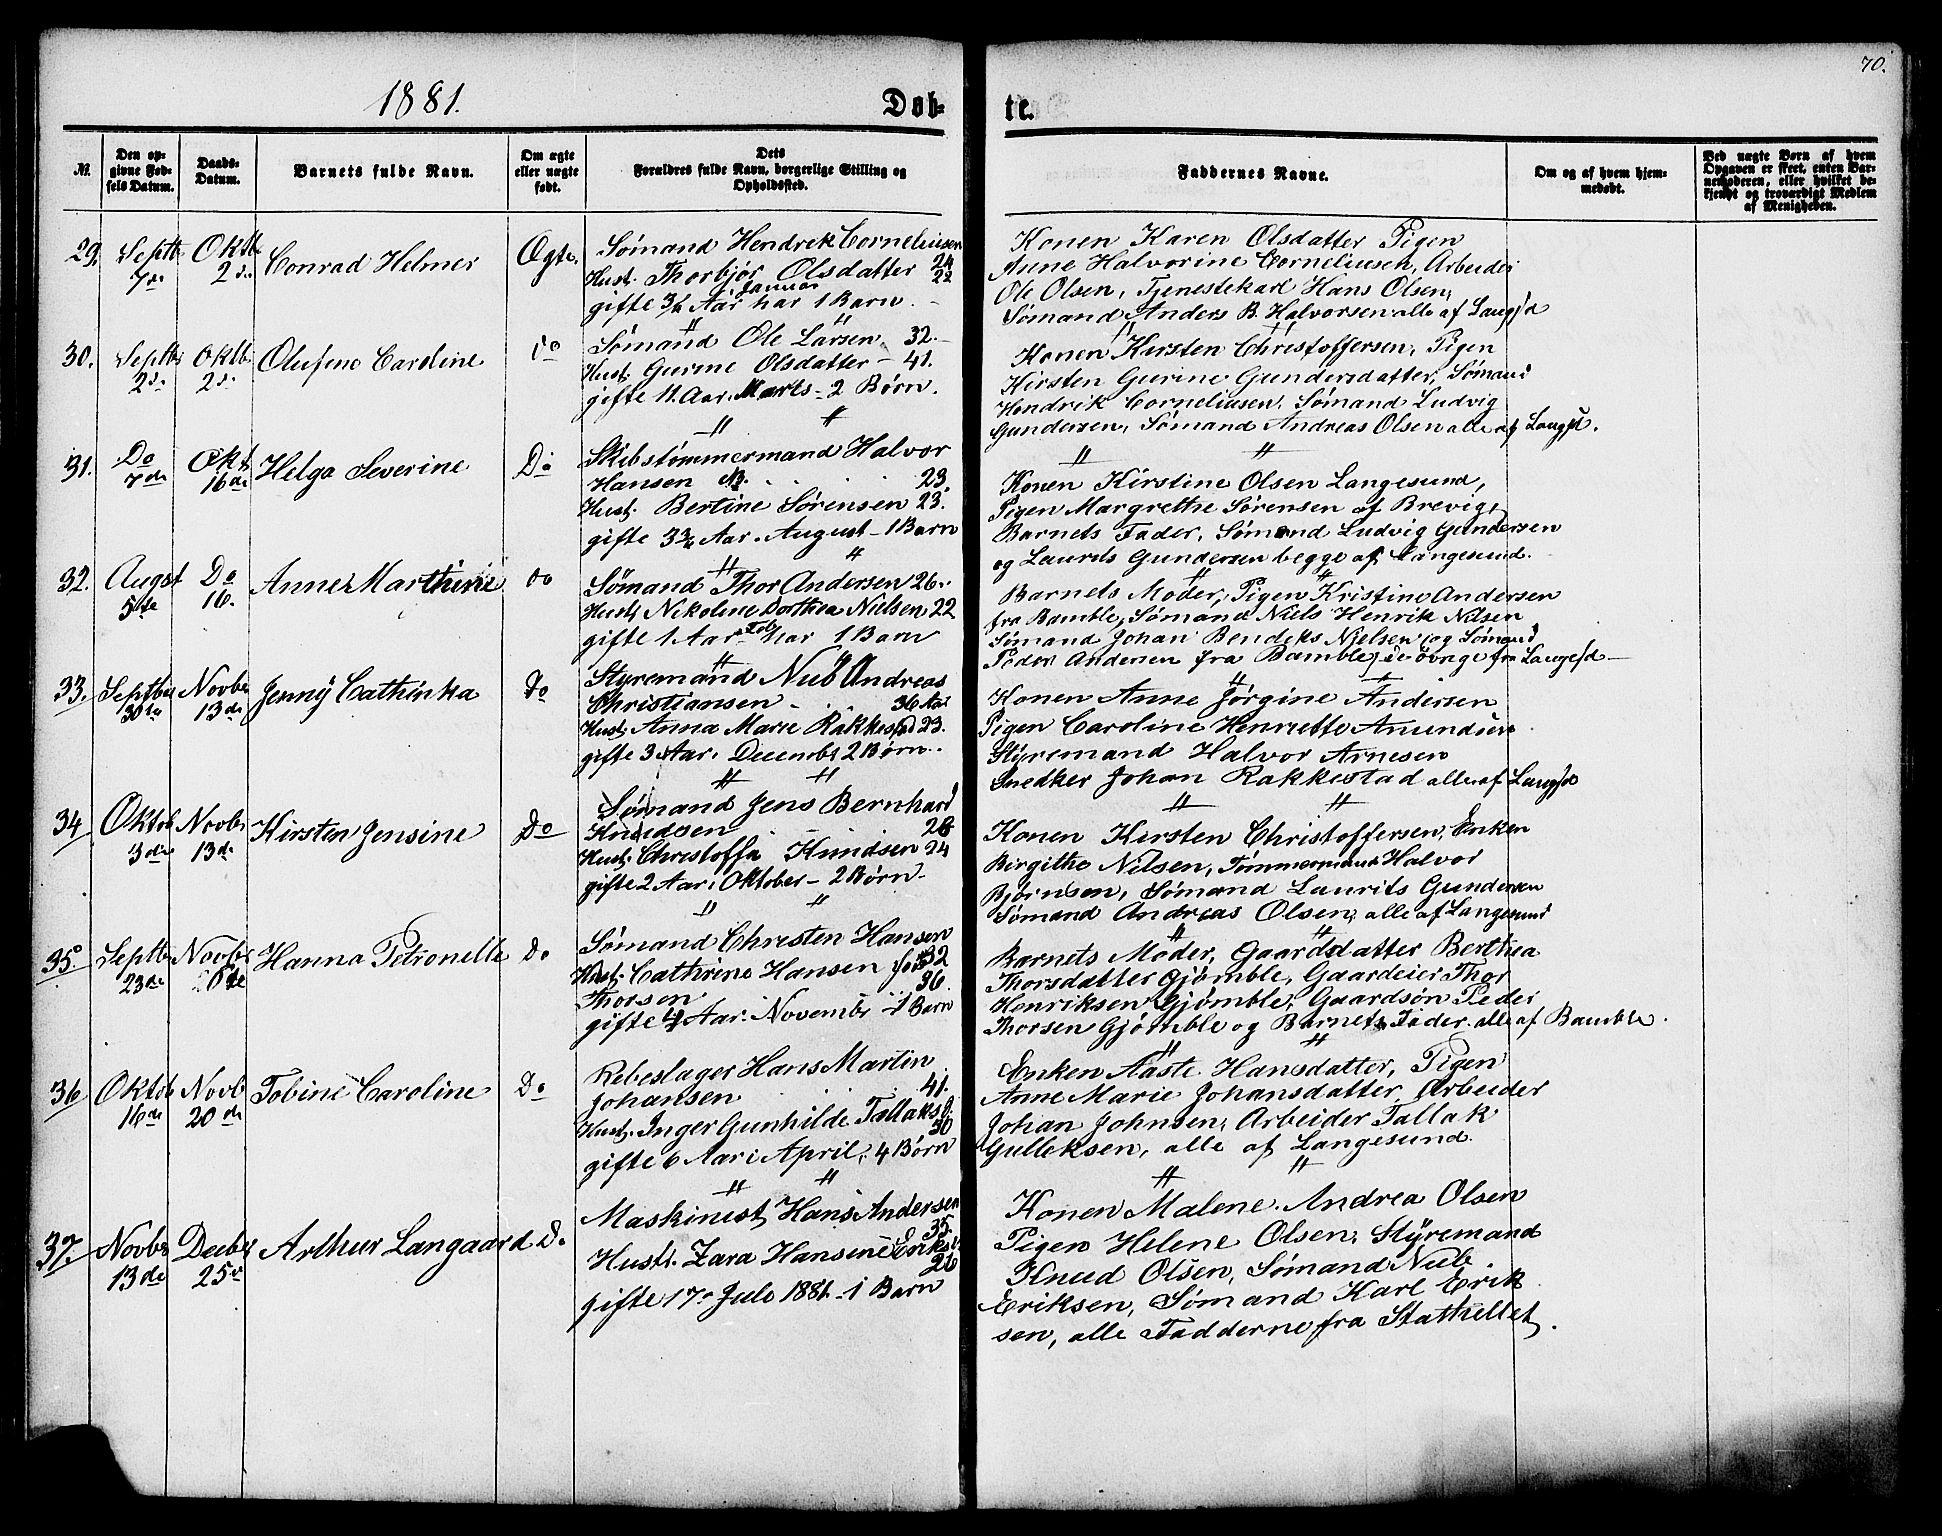 70.
1881.
Døb-
te.
№
Den op-
givne Fød-
sels Datum.
Daabs-
Datum.
Barnets fulde Navn.
Om ægte
eller uægte
født.
Dets
Forældres fulde Navn, borgerlige Stilling og
Opholdssted.
Faddernes Navne.
Om og af hvem hjem-
medøbt.
Ved uægte Børn af hvem
Opgaven er skeet, enten Bar-
nemoderen, eller hvilket be-
kjendt og troværdigt Medlem
af Menigheden.
29. Septb Oktb Conrad Helmer Ægte.
7de 2de
Sømand Hendrek Corneliusen 24
Hust. Thorbjør Olsdatter 22
Januar
gifte Aar har 1 Barn.
Konen Karen Olsdatter Pigen
Anne Halvorine Corneliusen, Arbeider
Ole Olsen, Tjenestekarl Hans Olsen,
Sømand Anders B. Halvorsen alle af Langsd
30. Septbr Oktb Olufine Caroline Do
2de 2de
Sømand Ole Larsen 32.
Hust. Gurine Olsdatter - 41.
gifte 11. Aar. Marts - 2 Børn.
Konen Kirsten Christoffersen, Pigen
Kirsten Gurine Gundersdatter, Sømand
Hendrik Corneliusen, Sømand Ludvig
Gundersen, Sømand Andreas Olsen alle af Langsd.
31. Do Okt Helga Severine Do
7de 16de
Skibstømmermand Halvor
Hansen 23.
Hust. Bertine Sørensen 23.
gifte 3¾ Aar. August - 1 Barn
Konen Kirstine Olsen Langesund,
Pigen Margrethe Sørensen af Brevig,
Barnets Fader, Sømand Ludvig Gundersen
og Laurits Gundersen begge af Langesund.
32. Augst Do Anne Marthine Do
5te 16.
Sømand Thor Andersen 26.
Hust. Nikoline Dorthea Nielsen 22
gifte 1 Aar Feb har 1 Barn
Barnets Moder, Pigen Kristine Andersen
fra Bamble, Sømand Niels Henrik Nilsen
Sømand Johan Bendeks Nielsen og Sømand
Peder Andersen fra Bamble, de øvrige fra Langesd
33. Septber Novbr Jenny Cathinka Do
30te 13de
Styremand Niels Andreas
Christiansen 36 Aar
Hust. Anna Marie Rakkestad 23.
gifte 3 Aar. Decembr 2 Børn.
Konen Anne Jørgine Andersen
Pigen Caroline Henriette Amundsen
Styremand Halvor Arnesen
Snedker Johan Rakkestad alle af Langsd
34 Oktob Novbr Kirsten Jensine Do
3die 13de
Sømand Jens Bernhard
Knudsen 28
Hust. Christoffa Knudsen 24
gifte 2 Aar i Oktober - 2 Børn.
Konen Kirsten Christoffersen, Enken
Birgithe Nilsen, Tømmermand Halvor
Bjørnsen, Sømand Laurits Gundersen
Sømand Andreas Olsen, alle af Langesund
35 Septbr Novbr Hanna Petronelle Do
23de
Sømand Christen Hansen 32
Hust. Cathrine Hansen født
Thorsen 36.
gifte 4 Aar. Novembr - 1 Barn
Barnets Moder, Gaardsdatter Berthea
Thorsdatter Gjømble, Gaardeier Thor
Henriksen Gjømble, Gaardsøn Peder
Thorsen Gjømble og Barnets Fader alle af Bamble.
36 Oktob Novb Tobine Caroline Do
16de 20de
Rebeslager Hans Martin
Johansen 41.
Hust. Inger Gunhilde Tallaks D. 30
gifte 6 Aar i April, 4 Børn
Enken Aaste Hansdatter, Pigen
Anne Marie Johansdatter, Arbeider
Johan Johnsen, Arbeider Tallak
Gulleksen, alle af Langesund.
37. Novbr Decbr Arthur Langaard Do
13de 25de
Maskinist Hans Andersen
35.
Hustr. Zara Hansine Eriks
26
gifte 17de Juli 1881 - 1 Barn
Konen Malene Andrea Olsen
Pigen Helene Olsen, Styremand
Knud Olsen, Sømand Niels
Eriksen, Sømand Karl Erik
sen, alle Fadderne fra Stathellet.